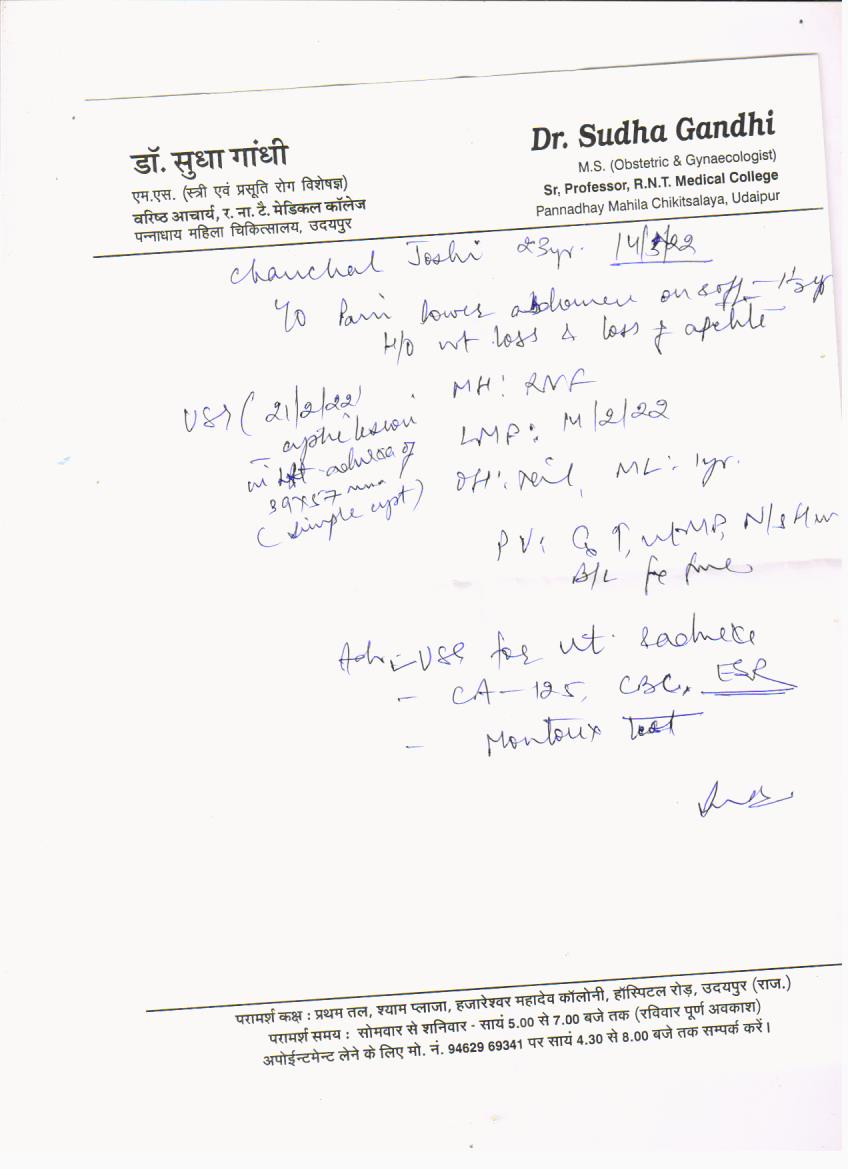 डॉ. सुधा गांधी
एम.एस. (स्त्री एवं प्रसूति रोग विशेषज्ञ)
वरिष्ठ आचार्य, र. ना. टै. मेडिकल कॉलेज
पन्नाधाय महिला चिकित्सालय, उदयपुर
Dr. Sudha Gandhi
M.S. (Obstetric & Gynaecologist)
Sr, Professor, R.N.T. Medical College
Pannadhay Mahila Chikitsalaya, Udaipur
Chanchal Joshi 23yr. 14/3/22
Pain lower abdomen on & off - 1½ yr
H/O wt loss & loss of
USG (21/2/22)
lesion
in adnexa of
39x57 mm
(simple cyst)
MH: RNF
LMP: /2/22
OH: Nil, ML: 1yr.
PV:
B/L
Adv:- USG for ut.
- CA-125, CBC, ESR
- Montoux Test
परामर्श कक्ष : प्रथम तल, श्याम प्लाजा, हजारेश्वर महादेव कॉलोनी, हॉस्पिटल रोड़, उदयपुर (राज.)
परामर्श समय : सोमवार से शनिवार - सायं 5.00 से 7.00 बजे तक (रविवार पूर्ण अवकाश)
अपोईन्टमेन्ट लेने के लिए मो. नं. 94629 69341 पर सायं 4.30 से 8.00 बजे तक सम्पर्क करें।